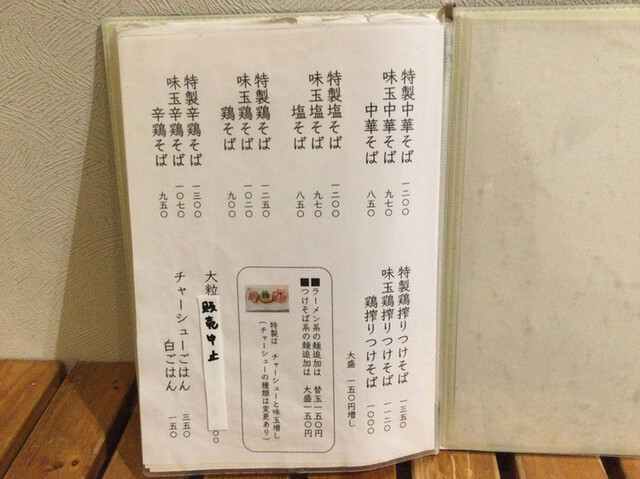 特製中華そば 一二〇〇
味玉中華そば 九七〇
中華そば 八五〇
特製塩そば 一二〇〇
味玉塩そば 九七〇
塩そば 八五〇
特製鶏そば 一二五〇
味玉鶏そば 一〇二〇
鶏そば 九〇〇
特製辛鶏そば 一三〇〇
味玉辛鶏そば 一〇七〇
辛鶏そば 九五〇
特製鶏搾りつけそば 一三五〇
味玉鶏搾りつけそば 一一二〇
鶏搾りつけそば 一〇〇〇
大盛 一五〇円増し
■ラーメン系の麺追加は 替玉一五〇円
■つけそば系の麺追加は 大盛一五〇円
特製は チャーシューと味玉増し
(チャーシューの種類は変更あり)
大粒 販売中止 〇〇
チャーシューごはん 三五〇
白ごはん 一五〇